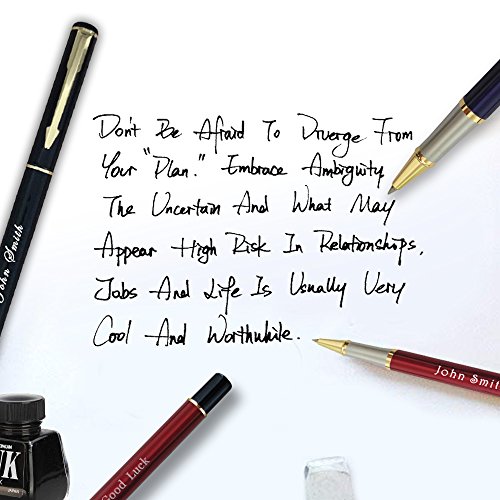 Don't Be Afraid To Diverge From
Your "Plan." Embrace Ambiguity
The Uncertain And What May
Appear High Risk In Relationships,
Jobs And Life Is Usually Very
Cool And Worthwhile.
John Smith
John Smith
Good Luck
NK
JAPAN